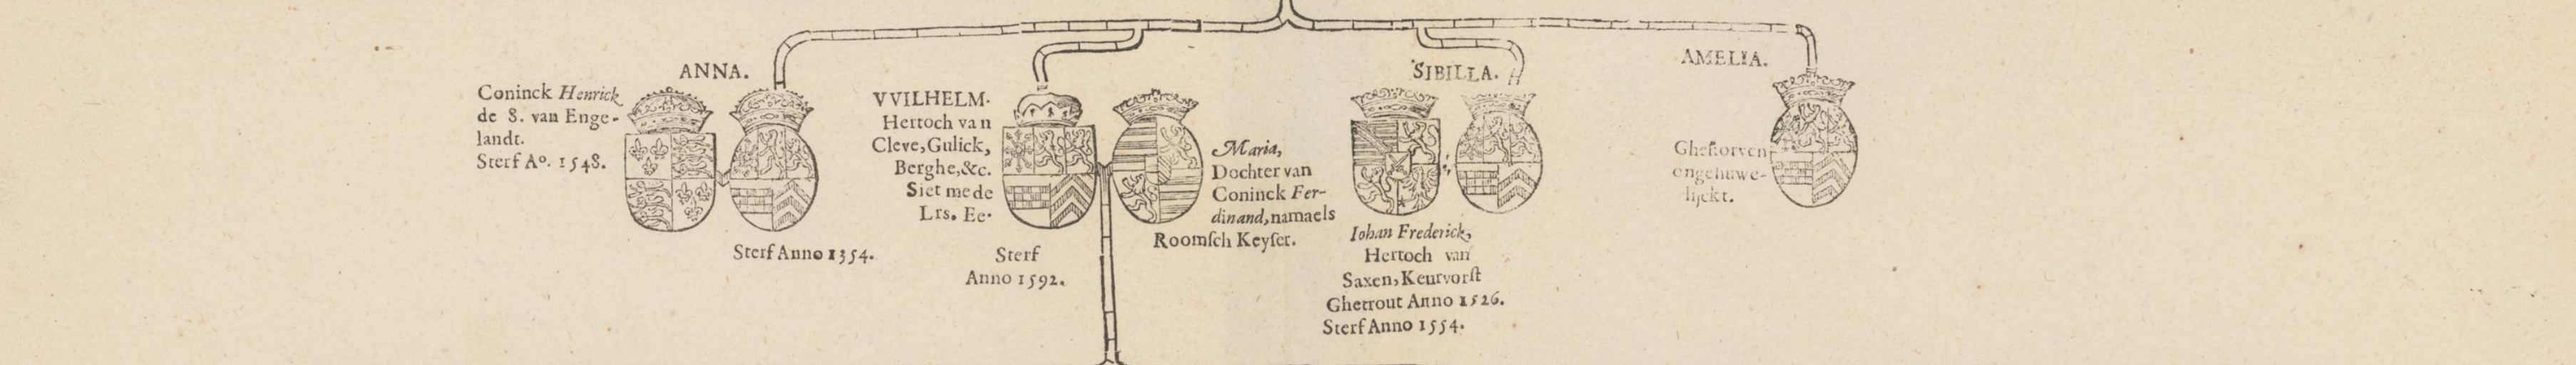 ANNA.
Coninck Henrick
de 8. van Enge-
landt.
Sterf Aº. 1548.
Sterf Anno 1354.
VVILHELM.
Hertoch van
Cleve, Gulick,
Berghe, &c.
Siet mede
Lrs. Ee.
Sterf
Anno 1592.
Maria,
Dochter van
Coninck Fer-
dinand, namaels
Roomsch Keyser.
SIBILLA.
Iohan Frederick,
Hertoch van
Saxen, Keurvorst
Ghetrout Anno 1526.
Sterf Anno 1554.
AMELIA.
Ghestorven
ongehuwe-
lijckt.